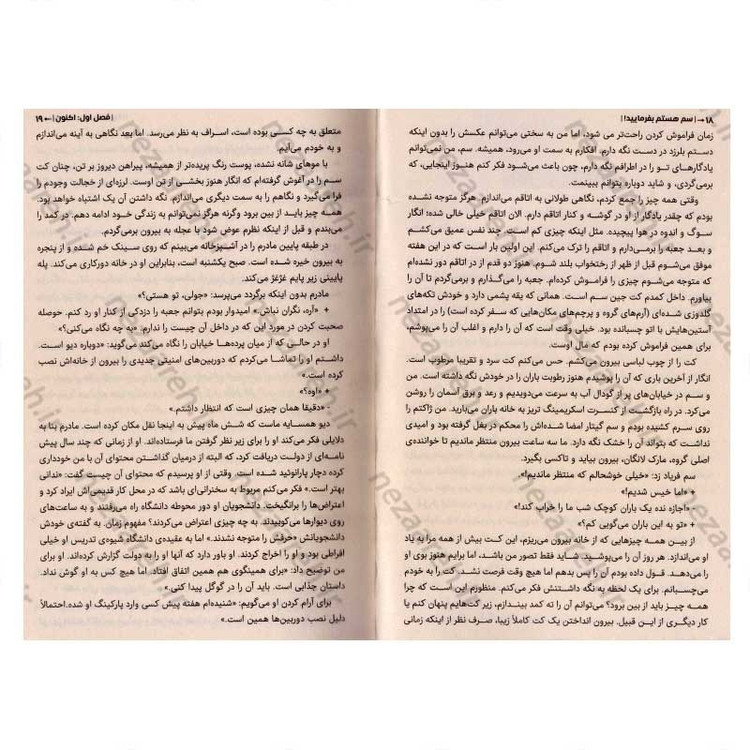 ۱۸ | سم هستم بفرمایید!
زمان فراموش کردن راحت‌تر می شود، اما من به سختی می‌توانم عکسش را بدون اینکه
دستم بلرزد در دست نگه دارم. افکارم به سمت او می‌رود، همیشه. سم، من نمی‌توانم
یادگارهای تو را در اطرافم نگه دارم، چون باعث می‌شود فکر کنم هنوز اینجایی، که
برمی‌گردی، و شاید دوباره بتوانم ببینمت.
وقتی همه چیز را جمع کردم، نگاهی طولانی به اتاقم می‌اندازم. هرگز متوجه نشده
بودم که چقدر یادگار از او در گوشه و کنار اتاقم دارم. الان اتاقم خیلی خالی شده؛ انگار
سوگ و اندوه در هوا پیچیده. مثل اینکه چیزی کم است. چند نفس عمیق می‌کشم
و بعد جعبه را برمی‌دارم و اتاقم را ترک می‌کنم. این اولین بار است که در این هفته
موفق می‌شوم قبل از ظهر از رختخواب بلند شوم. هنوز دو قدم از در اتاقم دور نشده‌ام
که متوجه می‌شوم چیزی را فراموش کرده‌ام. جعبه را می‌گذارم و برمی‌گردم تا آن را
بیاورم. داخل کمدم کت جین سم است. همانی که یقه پشمی دارد و خودش تکه‌های
گلدوزی شده‌ای (آرم‌های گروه و پرچم‌های مکان‌هایی که سفر کرده است) را در امتداد
آستین‌هایش با اتو چسبانده بود. خیلی وقت است که آن را دارم و اغلب آن را می‌پوشم،
برای همین فراموش کرده بودم که مال اوست.
کت را از چوب لباسی بیرون می‌کشم. حس می‌کنم کت سرد و تقریبا مرطوب است.
انگار از آخرین باری که آن را پوشیدم هنوز رطوبت باران را در خودش نگه داشته است. من
و سم در خیابان‌های پر از گودال آب به سرعت می‌دویدیم و رعد و برق آسمان را روشن
می‌کرد. در راه بازگشت از کنسرت اسکریمینگ تریز به خانه باران می‌بارید. من ژاکتم را
روی سرم کشیده بودم و سم گیتار امضا شده‌اش را محکم در بغل گرفته بود و امیدی
نداشت که بتواند آن را خشک نگه دارد. ما سه ساعت بیرون منتظر ماندیم تا خواننده‌ی
اصلی گروه، مارک لانگان، بیرون بیاید و تاکسی بگیرد.
سم فریاد زد: «خیلی خوشحالم که منتظر ماندیم!»
+ «اما خیس شدیم!»
- «اجازه نده یک باران کوچک شب ما را خراب کند!»
+ «تو به این باران می‌گویی کم؟»
از بین همه چیزهایی که از خانه بیرون می‌ریزم، این کت بیش از همه مرا به یاد
او می‌اندازد. هر روز آن را می‌پوشید. شاید فقط تصور من باشد، اما برایم هنوز بوی او
را می‌دهد. قول داده بودم آن را پس بدهم اما هیچ وقت فرصت نشد. کت را به خودم
می‌چسبانم. برای یک لحظه به نگه داشتنش فکر می‌کنم. منظورم این است که چرا
همه چیز باید از بین برود؟ می‌توانم آن را ته کمد بیندازم، زیر کت‌هایم پنهان کنم یا
کار دیگری از این قبیل. بیرون انداختن یک کت کاملاً زیبا، صرف نظر از اینکه زمانی
| فصل اول: اکنون | ۱۹
متعلق به چه کسی بوده است، اسراف به نظر می‌رسد. اما بعد نگاهی به آینه می‌اندازم
و به خودم می‌آیم.
با موهای شانه نشده، پوست رنگ پریده‌تر از همیشه، پیراهن دیروز بر تن، چنان کت
سم را در آغوش گرفته‌ام که انگار هنوز بخشی از تن اوست. لرزه‌ای از خجالت وجودم را
فرا می‌گیرد و نگاهم را به سمت دیگری می‌اندازم. نگه داشتن آن یک اشتباه خواهد بود.
همه چیز باید از بین برود وگرنه هرگز نمی‌توانم به زندگی خود ادامه دهم. در کمد را
می‌بندم و قبل از اینکه نظرم عوض شود با عجله به بیرون برمی‌گردم.
در طبقه پایین مادرم را در آشپزخانه می‌بینم که روی سینک خم شده و از پنجره
به بیرون خیره شده است. صبح یکشنبه است، بنابراین او در خانه دورکاری می‌کند. پله
پایینی زیر پایم غژغژ می‌کند.
مادرم بدون اینکه برگردد می‌پرسد: «جولی، تو هستی؟»
+ «آره، نگران نباش.» امیدوار بودم بتوانم جعبه را دزدکی از کنار او رد کنم. حوصله
صحبت کردن در مورد این که در داخل آن چیست را ندارم. «به چه نگاه می‌کنی؟»
او در حالی که از میان پرده‌ها خیابان را نگاه می‌کند می‌گوید: «دوباره دیو است.
داشتم او را تماشا می‌کردم که دوربین‌های امنیتی جدیدی را بیرون از خانه‌اش نصب
کرده است.»
+ «اوه؟»
- «دقیقا همان چیزی است که انتظار داشتم.»
دیو همسایه ماست که شش ماه پیش به اینجا نقل مکان کرده است. مادرم بنا به
دلایلی فکر می‌کند او را برای زیر نظر گرفتن ما فرستاده‌اند. او از زمانی که چند سال پیش
نامه‌ای از دولت دریافت کرد، که البته از درمیان گذاشتن محتوای آن با من خودداری
کرده دچار پارانوئید شده است. وقتی از او پرسیدم که محتوای آن چیست گفت: «ندانی
بهتر است.» فکر می‌کنم مربوط به سخنرانی‌ای باشد که در محل کار قدیمی‌اش ایراد کرد و
اعتراض‌ها را برانگیخت. دانشجویان او دور محوطه دانشگاه راه می‌رفتند و به ساعت‌های
روی دیوارها می‌کوبیدند. به چه چیزی اعتراض می‌کردند؟ مفهوم زمان. به گفته‌ی خودش
دانشجوبانش «حرفش را متوجه نشدند.» اما به عقیده‌ی دانشگاه شیوه‌ی تدریس او خیلی
افراطی بود و او را اخراج کردند. او باور دارد که آنها او را به دولت گزارش کرده‌اند. او برای
من توضیح داد: «برای همینگوی هم همین اتفاق افتاد. اما هیچ کس به او گوش نداد.
داستان جذابی است. باید آن را در گوگل پیدا کنی.»
برای آرام کردن او می‌گویم: «شنیده‌ام هفته پیش کسی وارد پارکینگ او شده.احتمالاً
دلیل نصب دوربین‌ها همین است.»
nezaareh.ir